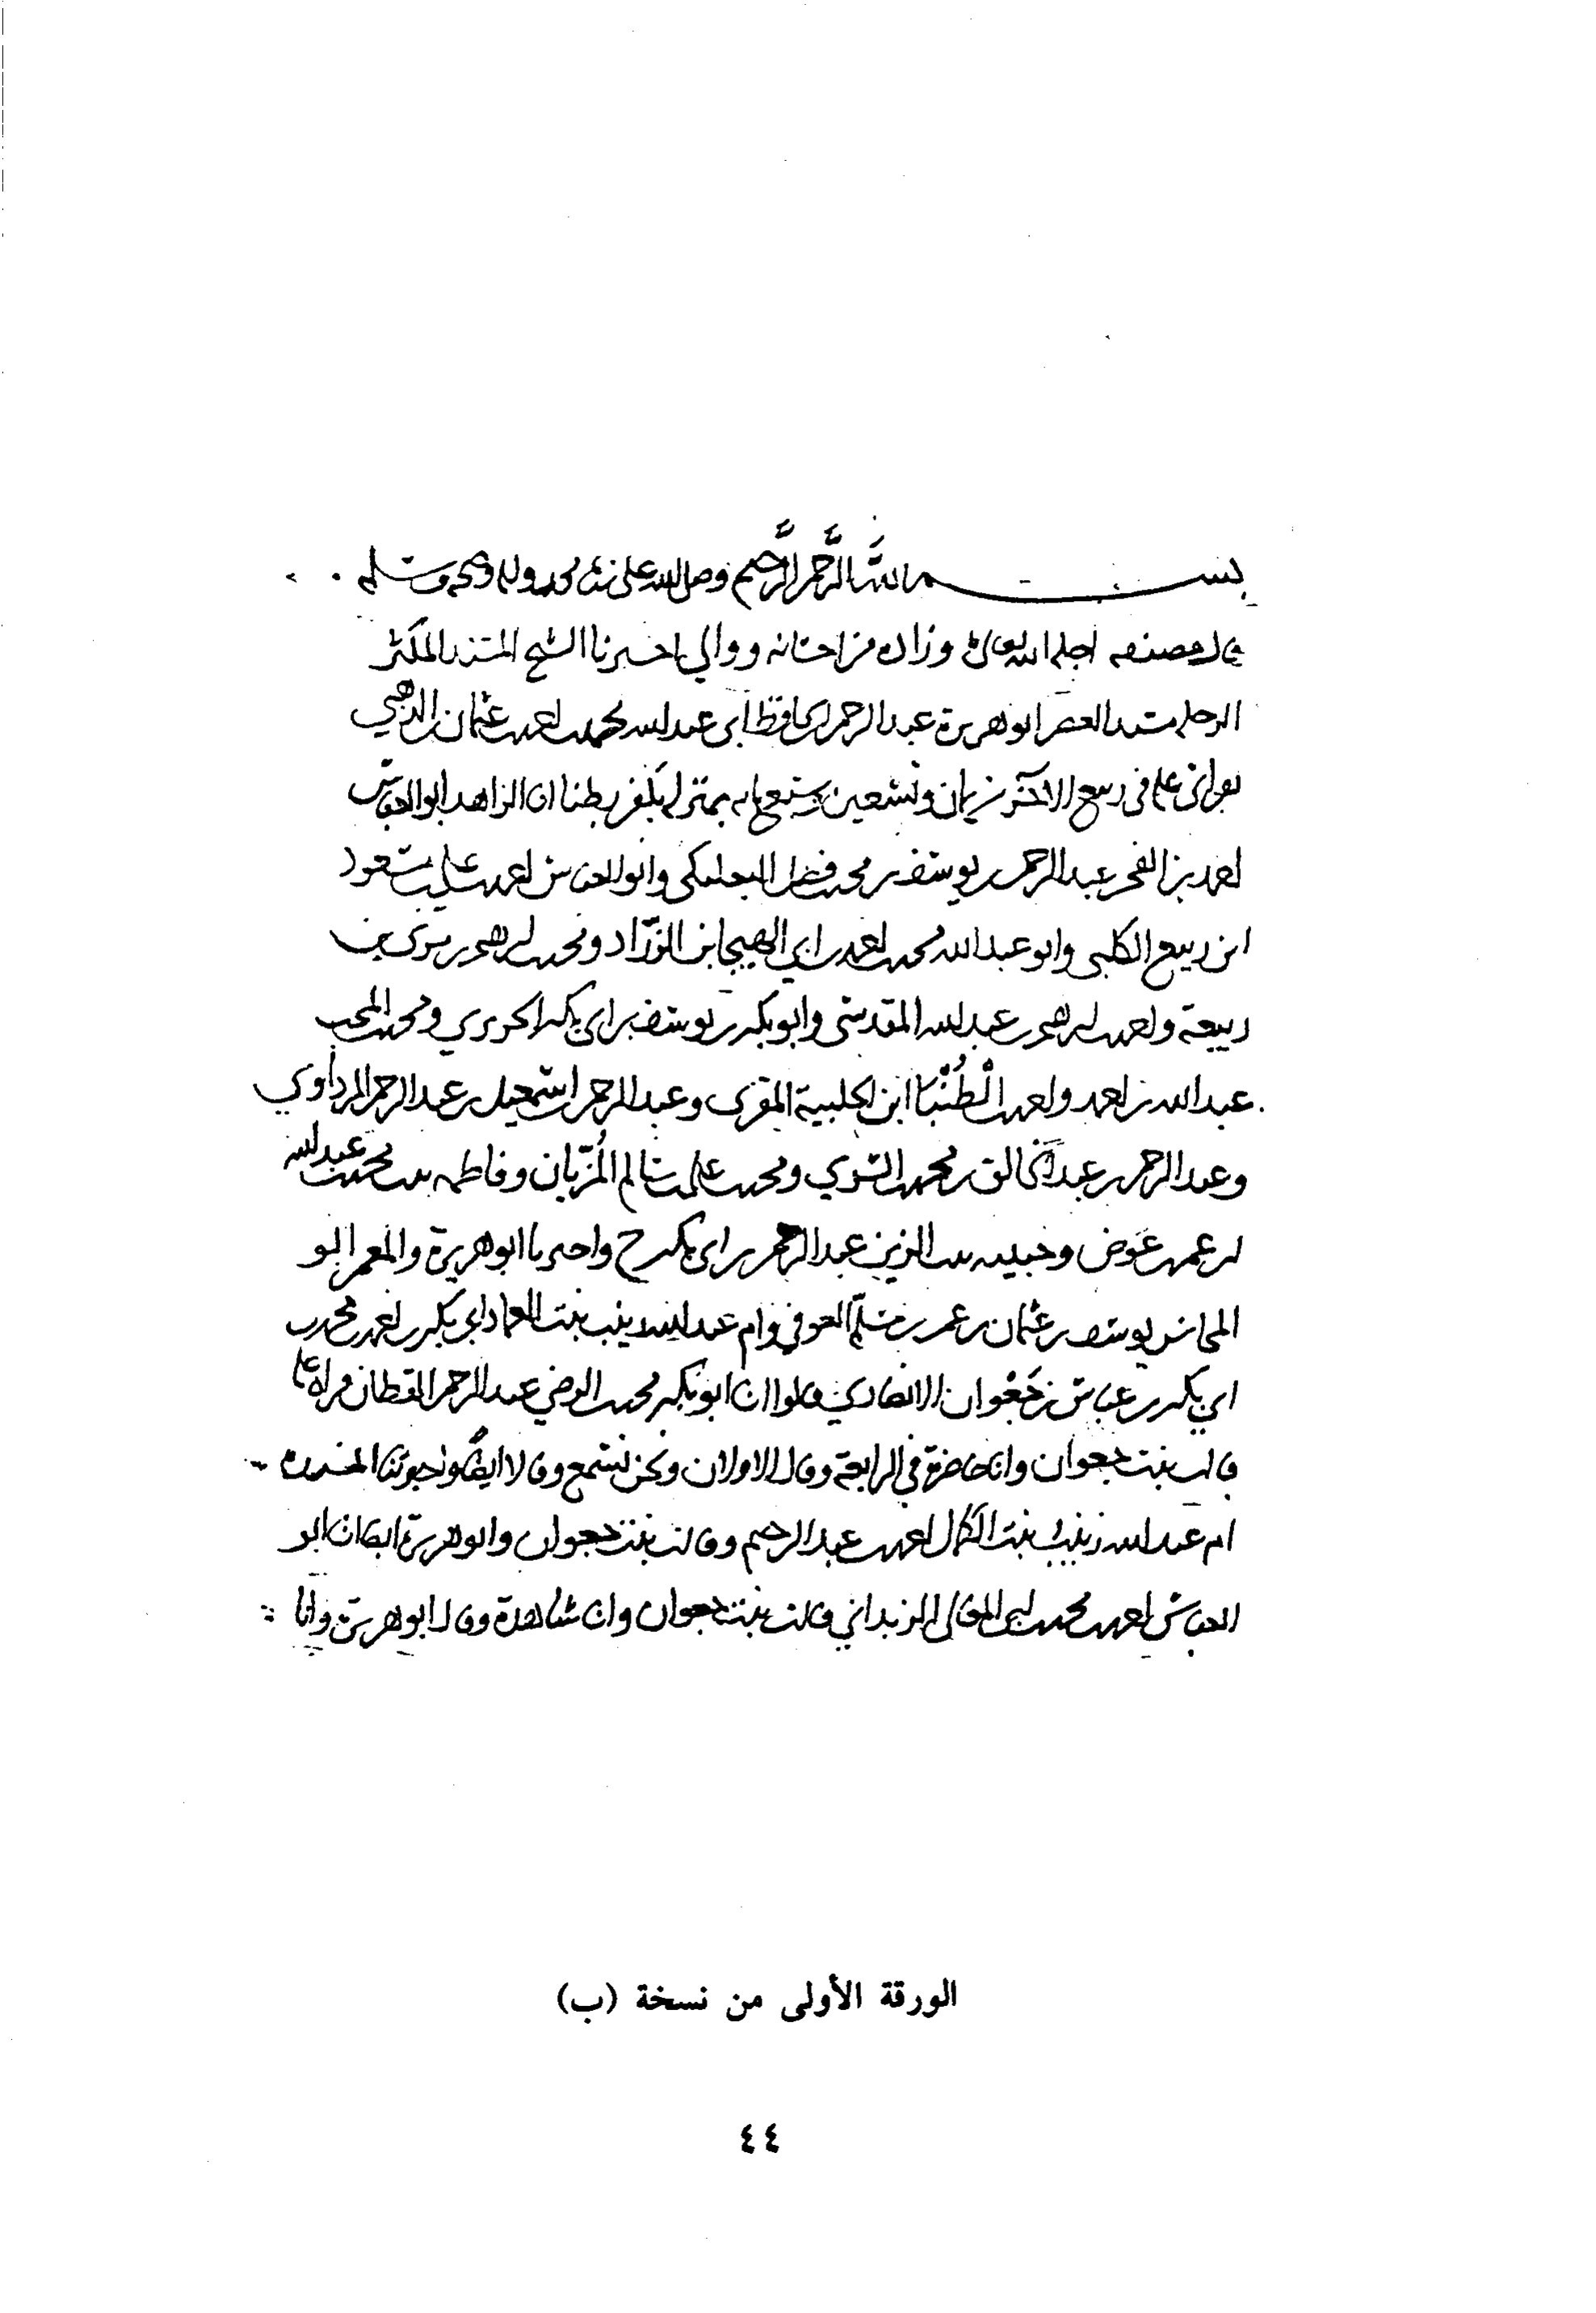 بسم الله الرحمن الرحيم وصلى الله على نبينا محمد وآله وصحبه وسلم
قال مصنفه الله تعالى وزاده من احسانه ووالى اخبرنا الشيخ المسند المكثر
الرحلة مسند العصر ابو هريرة عبد الرحمن بن الحافظ ابي عبد الله محمد بن احمد بن عثمان الذهبي
بقراءتي عليه في ربيع الآخر سنة ثمان وتسعين وسبع مايه بمنزله بكفر بطنا انا الزاهد ابو العباس
احمد بن الفخر عبد الرحمن بن يوسف بن محمد فضل البعلبكي وابو العباس احمد بن علي بن مسعود
ابن ربيع الكلبي وابو عبد الله محمد بن احمد بن ابي الهيجا بن الزراد ومحمد بن ابرهيم بن مري بن
ربيعة واحمد بن ابرهيم بن عبد الله المقدسي وابو بكر بن يوسف بن ابي بكر الحريري ومحمد بن المحب
عبد الله بن احمد واحمد بن الطنبا ابن الحلبية المقري وعبد الرحمن بن اسمعيل بن عبد الرحمن المرداوي
وعبد الرحمن بن عبد الخالق بن محمد ومحمد بن علي بن سالم المزيان وفاطمه بنت محمد بن عبد الله
بن عمر بن عوض وحبيبه بنت الزين عبد الرحمن بن ابي بكر ح واخبرنا ابو هريرة والمعمر ابو
المحاسن يوسف بن عثمان بن عمر بن مسلم العوفي وام عبد الله زينب بنت العماد ابي بكر بن احمد بن محمد بن
ابي بكر بن عباس بن جعوان الانصاري قالوا انا ابو بكر محمد بن الرضي عبد الرحمن القطان قراءة عليه
قالت بنت جعوان وانا حاضرة في الرابعة وقال الاولان ونحن نسمع وقالا ايضا واخبرتنا
ام عبد الله زينب بنت الكمال احمد بن عبد الرحيم وقالت بنت جعوان وابو هريرة ايضا انا ابو
العباس احمد بن محمد بن ابي الزبداني قالت بنت جعوان وانا شاهدة وقال ابو هريرة وانا
الورقة الأولى من نسخة (ب)
٤٤